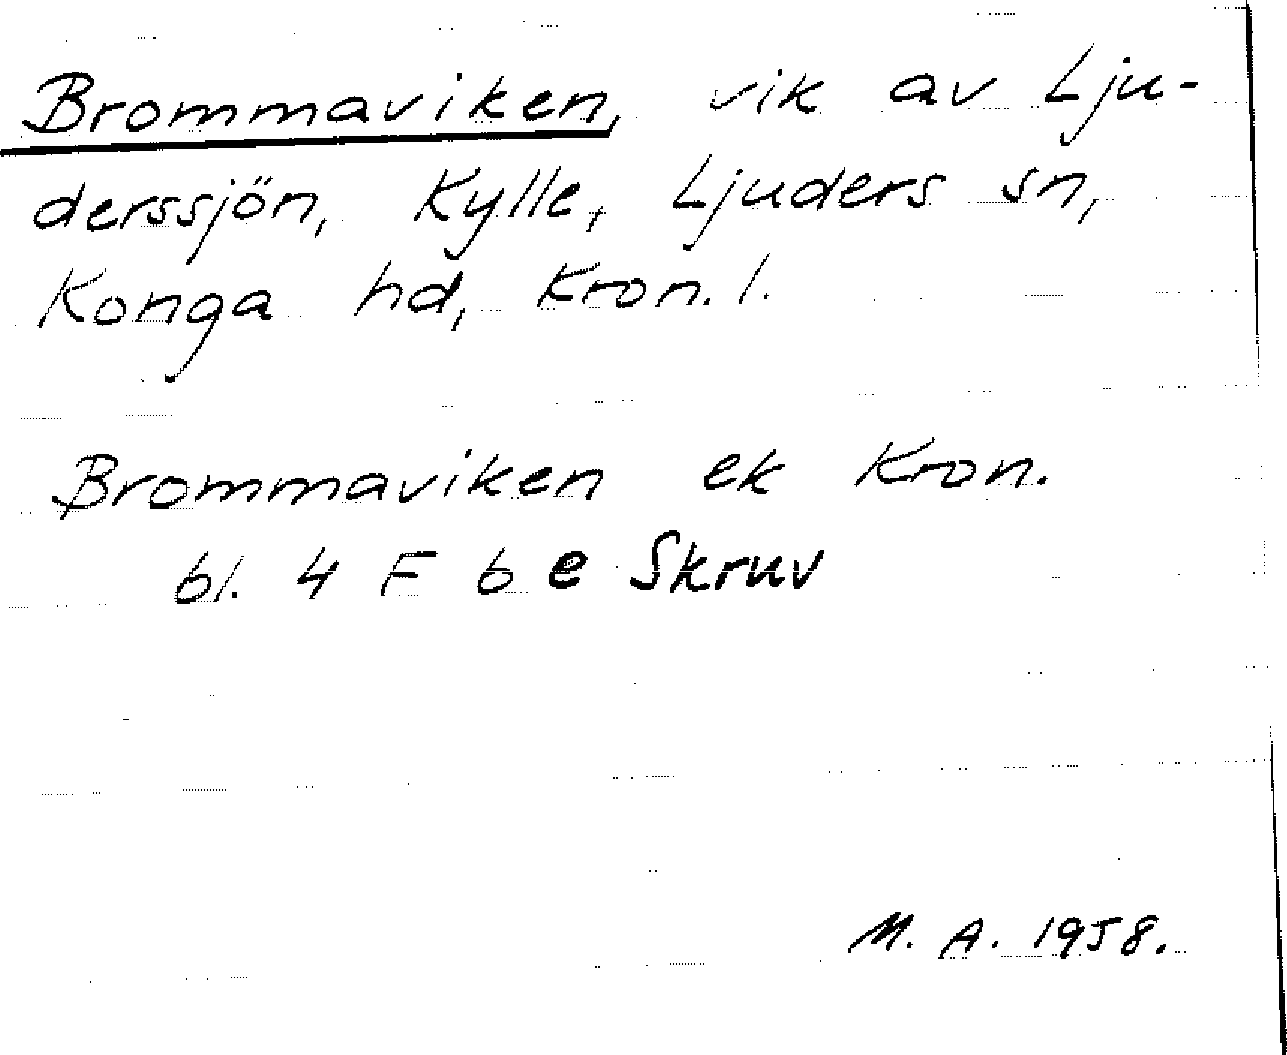 Brommaviken, vik av Lju-
derssjön, Kylle, Ljuders sn,
Konga hd, Kron. l.
Brommaviken ek Kron.
bl. 4 F 6 e Skruv
M. A. 1958.